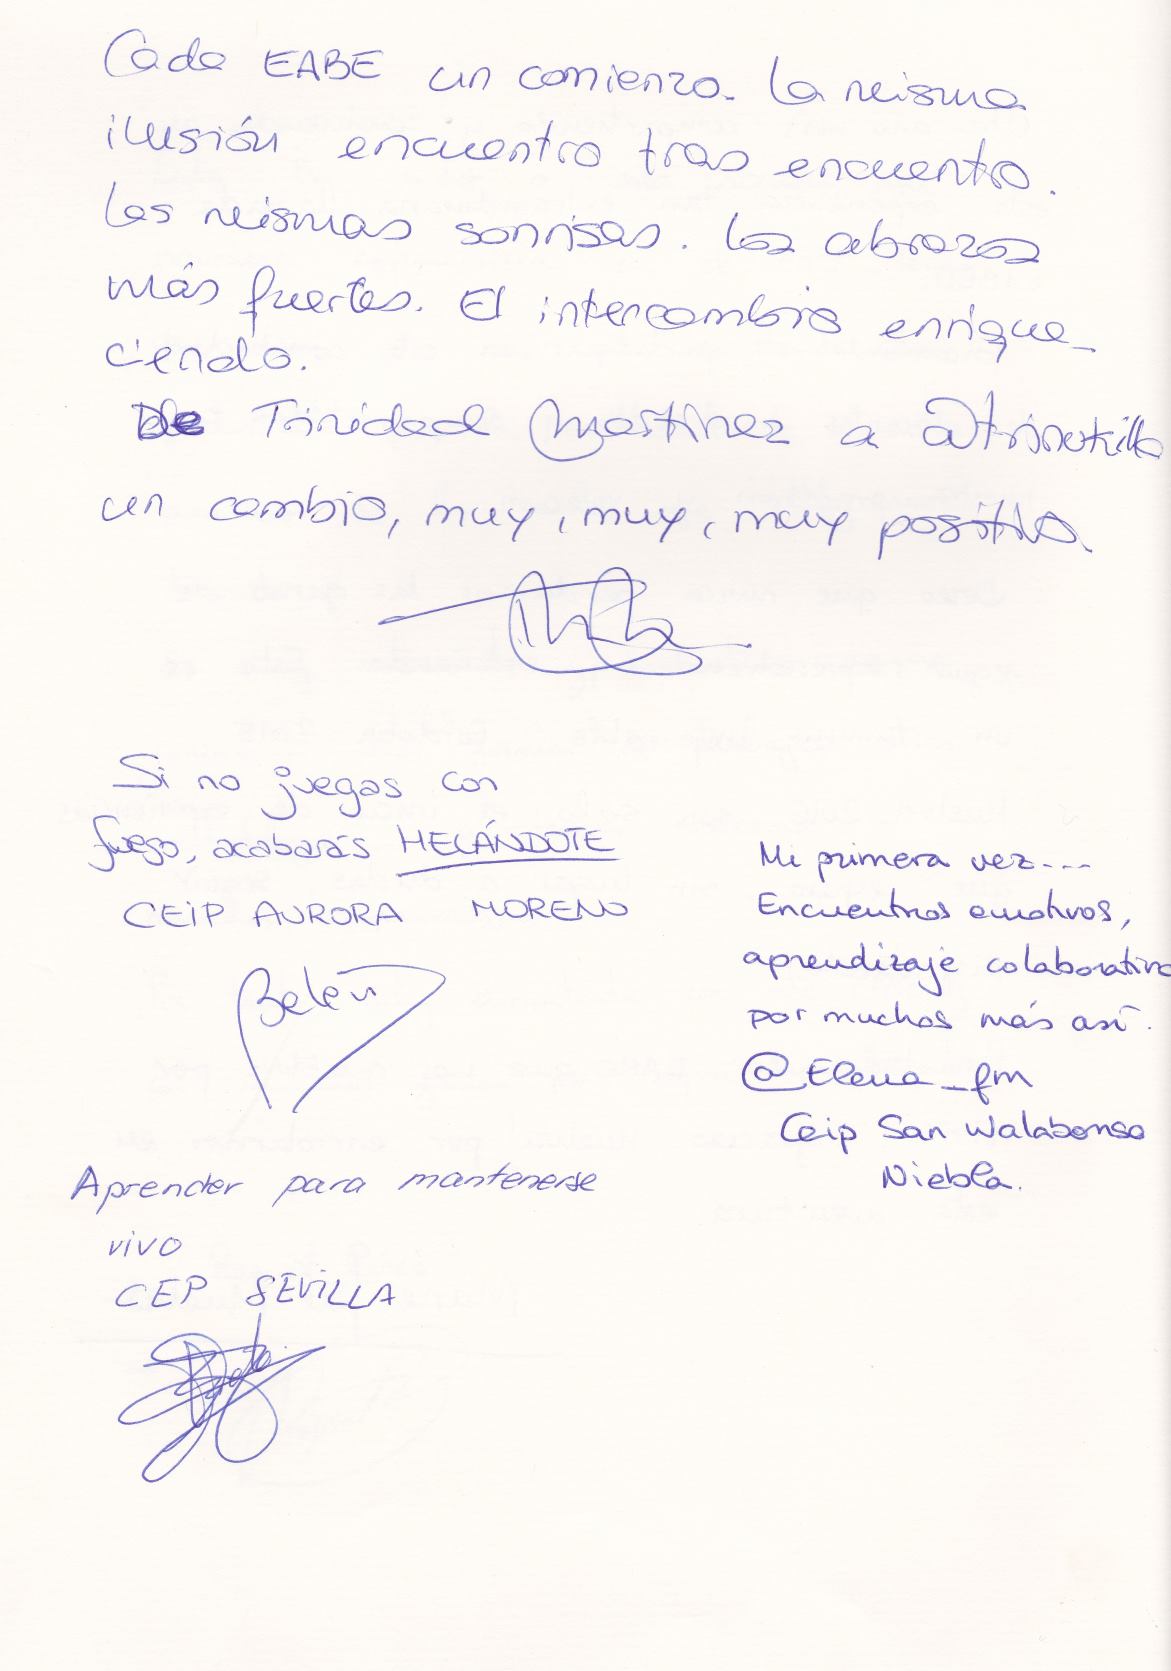 Cada EABE un comienzo. La misma
ilusión encuentro tras encuentro.
Las mismas sonrisas. Los abrazos
más fuertes. El intercambio enrique-
ciendo.
De Trinidad Martínez a @trinetilla
un cambio, muy, muy, muy positivo.
Si no juegas con
fuego, acabarás HELÁNDOTE
CEIP AURORA MORENO
Belén
Mi primera vez....
Encuentros emotivos,
aprendizaje colaborativo
por muchos más así.
@Elena_fm
Ceip San Walabonso
Niebla.
Aprender para mantenerse
vivo
CEP SEVILLA